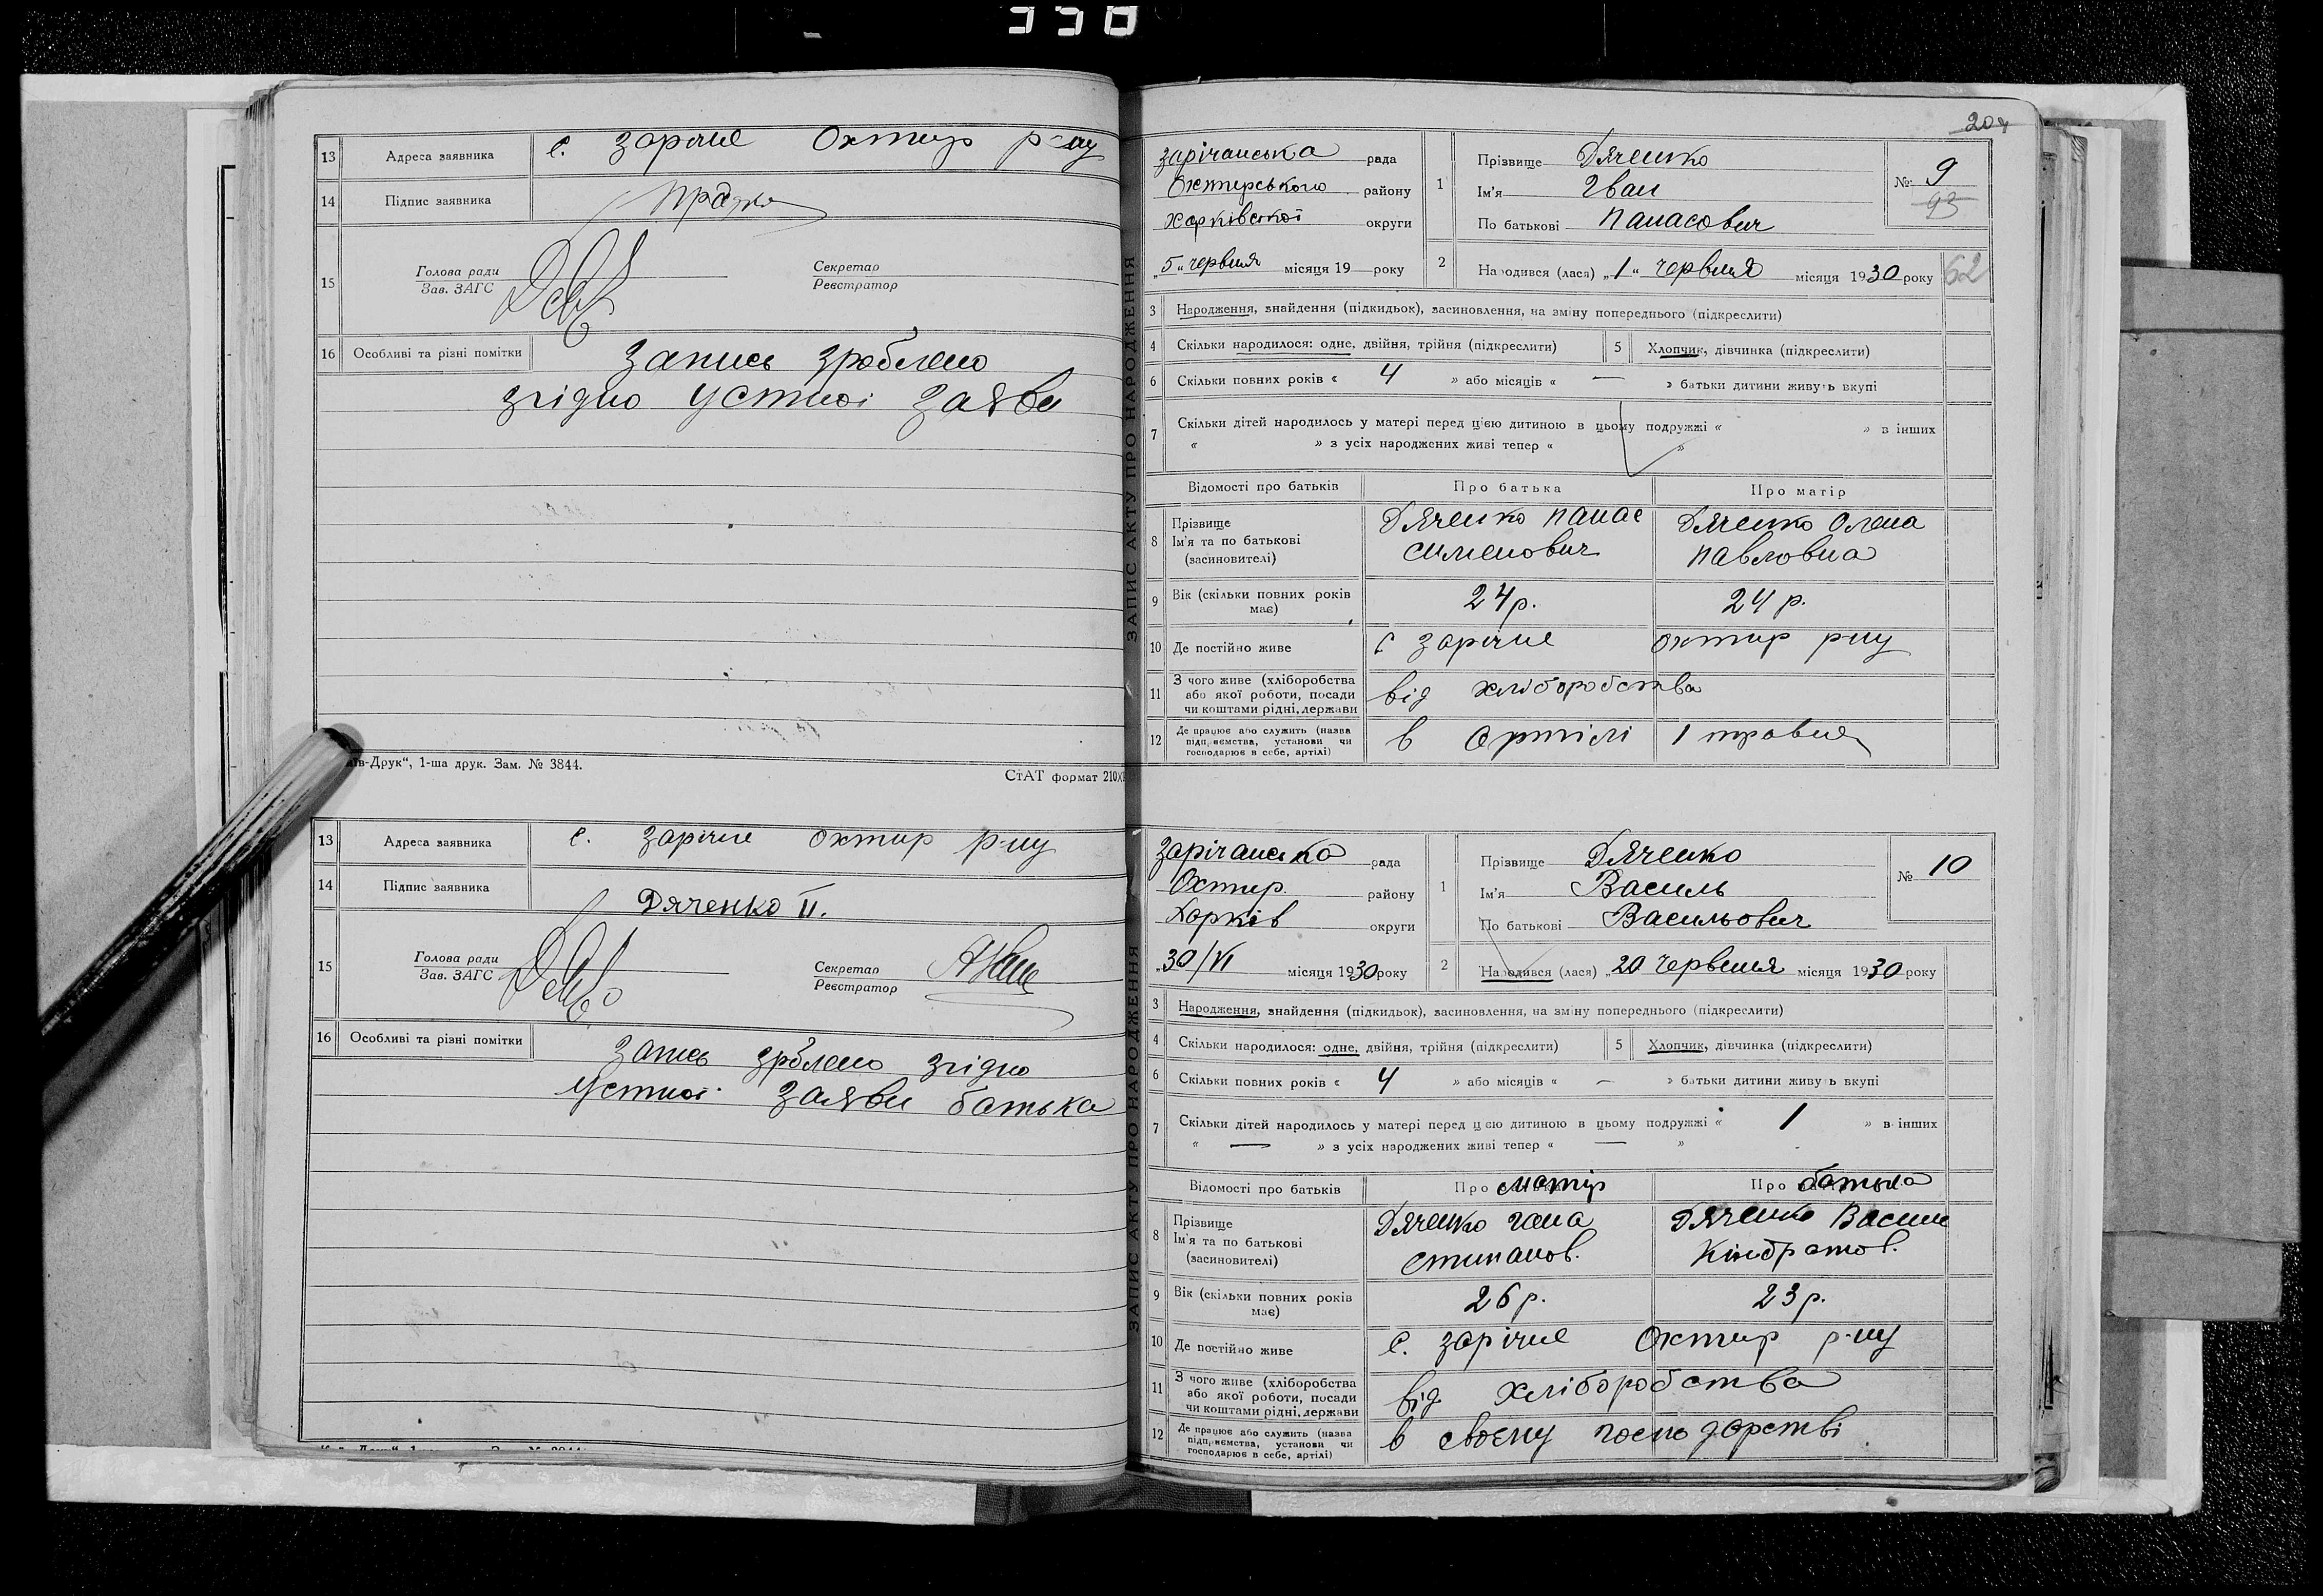 13 Адреса заявника с. Зарічне Охтир р-ну
14 Підпис заявника
15 Голова ради Секретар
Зав. ЗАГС Реєстратор
16 Особливі та різні помітки Запись зроблено
згідно устної заяви
-Друк“, 1-ша друк. Зам. № 3844.
СтАТ формат 210
13 Адреса заявника с. Зарічне Охтир р-ну
14 Підпис заявника Дяченко П.
15 Голова ради Секретар
Зав. ЗАГС Реєстратор
16 Особливі та різні помітки Запись зроблено згідно
устної заяви батька
ЗАПИС АКТУ ПРО НАРОДЖЕННЯ
Зарічанська рада
Охтирського району
Харківської округи
„5“ червня місяця 19 року
1 Прізвище Дяченко
Ім'я Іван
По батькові Панасович
№ 9
93
2 Народився (лася) „1“ червня місяця 1930 року 62
3 Народження, знайдення (підкидьок), засиновлення, на зміну попереднього (підкреслити)
4 Скільки народилося: одне, двійня, трійня (підкреслити) 5 Хлопчик, дівчинка (підкреслити)
6 Скільки повних років « 4 » або місяців « — » батьки дитини живуть вкупі
7 Скільки дітей народилось у матері перед цією дитиною в цьому подружжі « » в інших
« » з усіх народжених живі тепер « »
Відомості про батьків Про батька Про матір
8 Прізвище Ім'я та по батькові (засновителі) Дяченко Панас Дяченко Олена
Сименович Павловна
9 Вік (скільки повних років має) 24 р. 24 р.
10 Де постійно живе с Зарічне Охтир р-ну
11 З чого живе (хліборобства
або якої роботи, посади
чи коштами рідні, держави від хліборобства
12 Де працює або служить (назва
підприємства, установи чи
господарює в себе, артілі) в Артілі 1 травня
ЗАПИС АКТУ ПРО НАРОДЖЕННЯ
Зарічанська рада
Охтир. району
Харків округи
„30/VI місяця 1930 року
1 Прізвище Дяченко
Ім'я Василь
По батькові Васильович
№ 10
2 Народився (лася) „20 червння місяця 1930 року
3 Народження, знайдення (підкидьок), засиновлення, на зміну попереднього (підкреслити)
4 Скільки народилося: одне, двійня, трійня (підкреслити) 5 Хлопчик, дівчинка (підкреслити)
6 Скільки повних років « 4 » або місяців « — » батьки дитини живуть вкупі
7 Скільки дітей народилось у матері перед цією дитиною в цьому подружжі « 1 » в інших
« — » з усіх народжених живі тепер « — »
Відомості про батьків Про матір Про батька
8 Прізвище Ім'я та по батькові (засиновителі) Дяченко Гана Дяченко Василь
Стипанов. Кіндратов.
9 Вік (скільки повних років має) 26 р. 23 р.
10 Де постійно живе с. Зарічне Охтир р-ну
11 З чого живе (хліборобства
або якої роботи, посади
чи коштами рідні, держави від хліборобства
12 Де працює або служить (назва
підприємства, установи чи
господарює в себе, артілі) в своєму господарстві